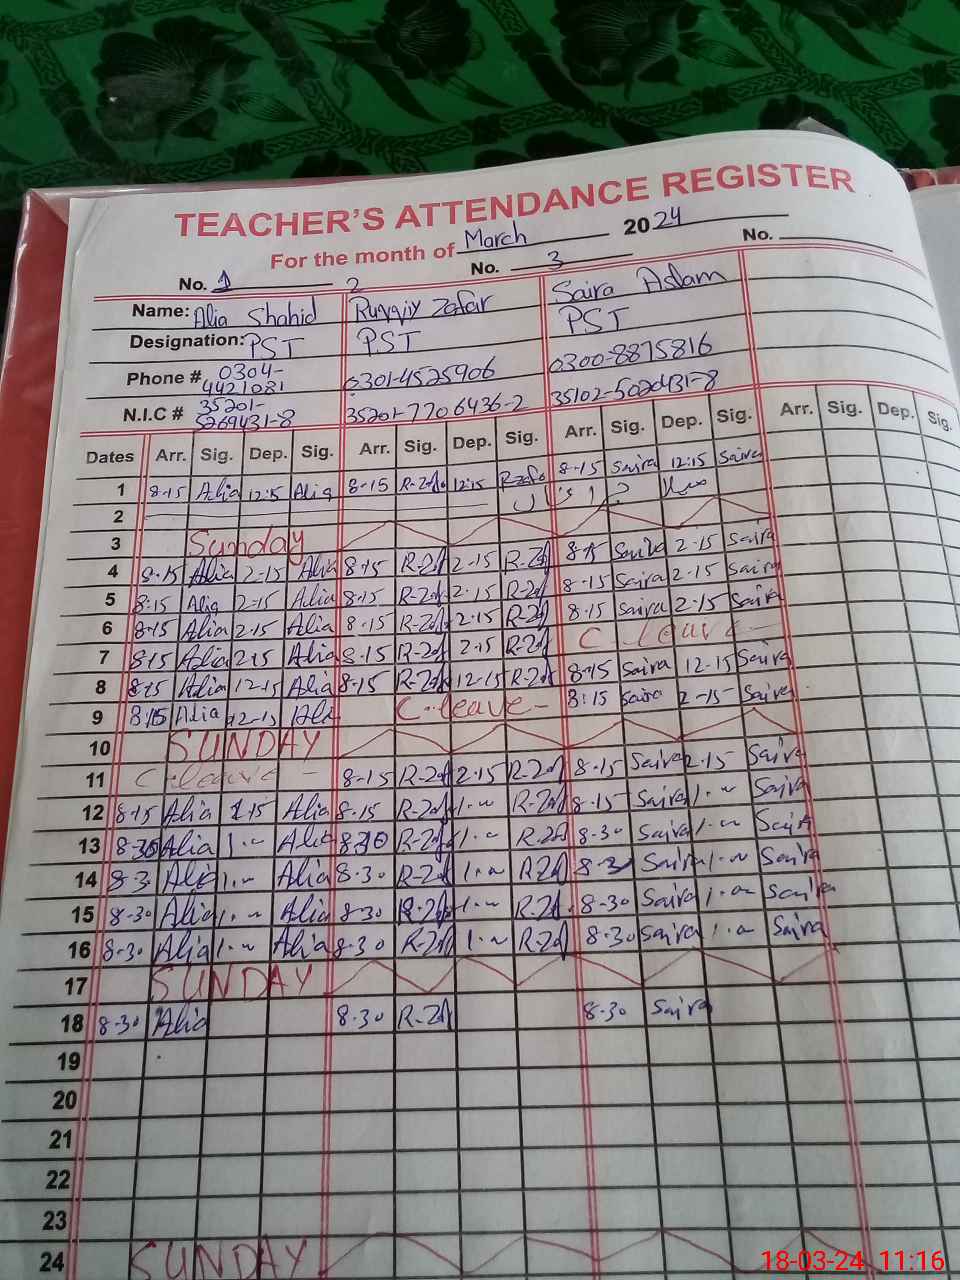 TEACHER'S ATTENDANCE REGISTER
For the month of March 2024
No. 1 2 No. 3 No.
Name: Alia Shahid Zafar Saira Aslam
Designation: PST PST PST
Phone # 0304-4421081 0301-4525906 0300-8875816
N.I.C # 35201-5269431-8 35201-7706436-2
Dates Arr. Sig. Dep. Sig. Arr. Sig. Dep. Sig. Arr. Sig. Dep. Sig. Arr. Sig. Dep. Sig.
1 8-15 Alia 12:15 Alia 8-15 12:15 8-15 Saira 12:15 Saira
2
3 Sunday
4 8-15 Alia 2-15 Alia 8-15 R-Zaf 2-15 R-Zaf 8-15 Saira 2-15 Saira
5 8:15 Alia 2-15 Alia 8-15 R-Zaf 2-15 R-Zaf 8-15 Saira 2-15 Saira
6 8-15 Alia 2-15 Alia 8-15 R-Zaf 2-15 R-Zaf 8-15 Saira 2-15 Saira
7 8-15 Alia 2-15 Alia 8-15 R-Zaf 2-15 R-Zaf C leave -
8 8-15 Alia 12-15 Alia 8-15 R-Zaf 12-15 R-Zaf 8-15 Saira 12-15 Saira
9 8-15 Alia 12-15 Ali C-leave- 8:15 Saira 2-15 Saira
10 SUNDAY
11 C-leave - 8-15 R-Zaf 2-15 R-Zaf 8-15 Saira 2-15 Saira
12 8-15 Alia Alia 8-15 R-Zaf 1-00 R-Zaf 8-15 Saira 1-00 Saira
13 8-30 Alia 1-00 Alia 8-30 R-Zaf 1-00 R-Zaf 8-30 Saira 1-00 Saira
14 8-3 Alia 1-00 Alia 8-30 R-Zaf 1-00 R-Zaf 8-3 Saira 1-00 Saira
15 8-30 Alia 1-00 Alia 8-30 R-Zaf 1-00 R-Zaf 8-30 Saira 1-00 Saira
16 8-30 Alia 1-00 Alia 8-30 R-Zaf 1-00 R-Zaf 8-30 Saira 1-00 Saira
17 SUNDAY
18 8-30 Alia 8-30 R-Zaf 8-30 Saira
19
20
21
22
23
24 SUNDAY
18-03-24 11:16